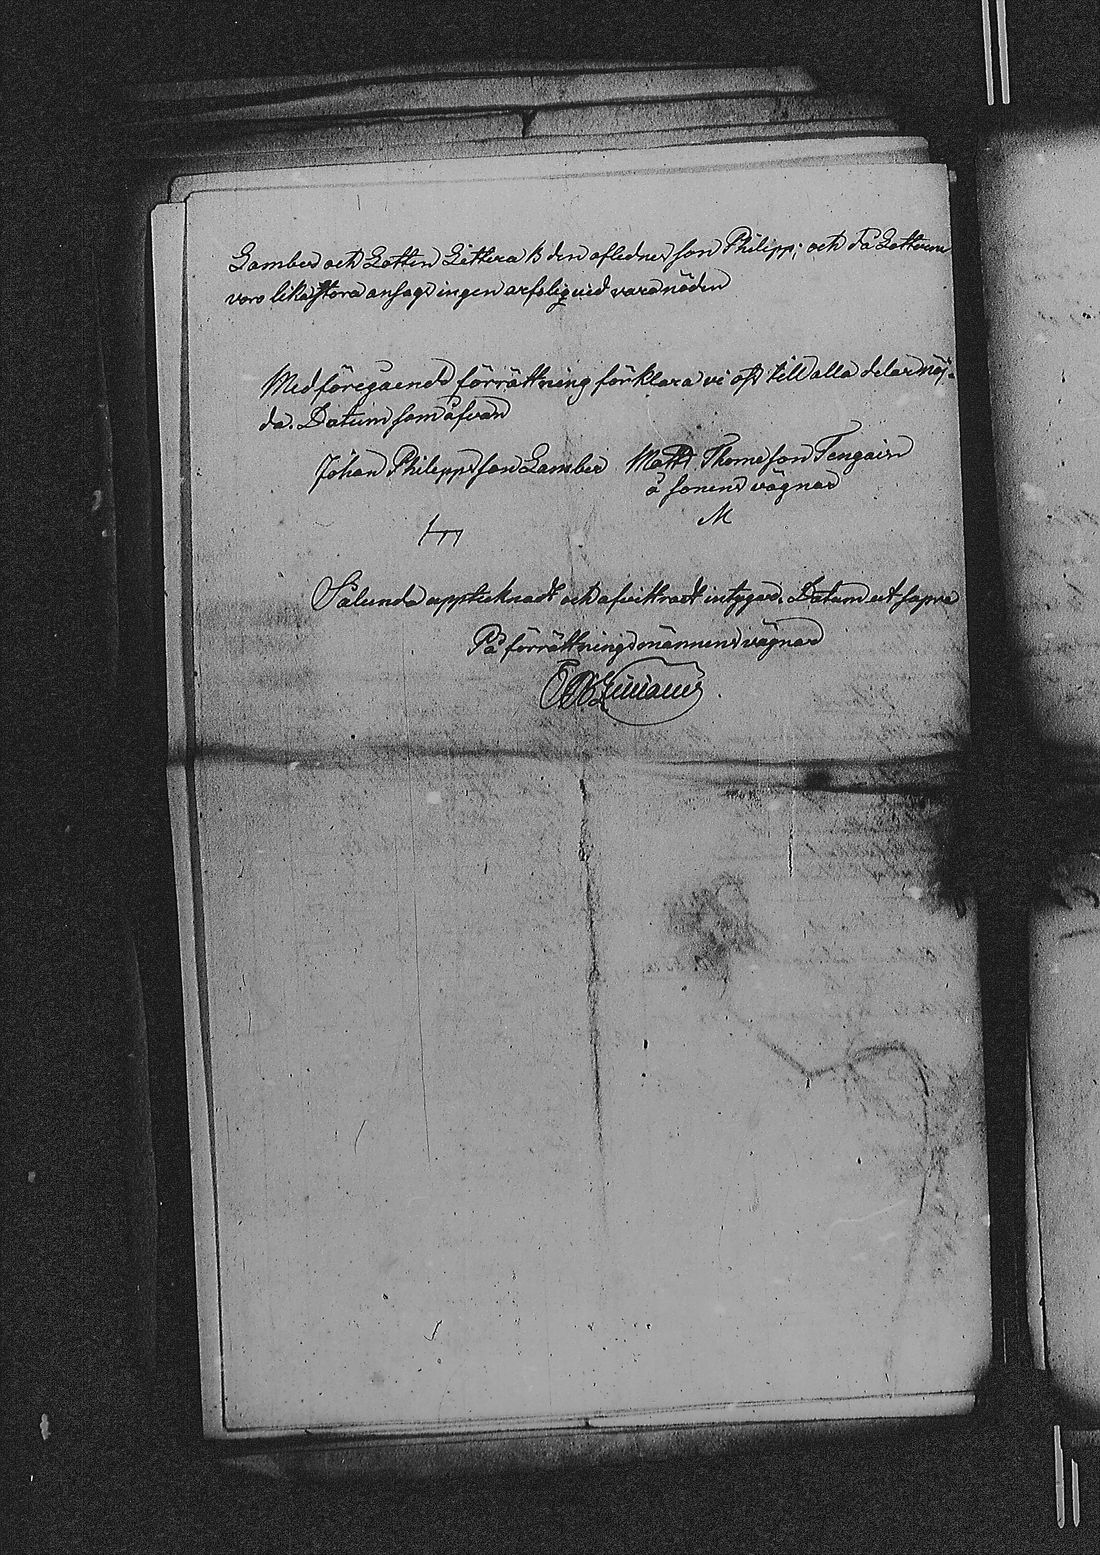 Lamber och Lotten Littera B den aflednes son Philipp; och då Lotterne
voro lika stora ansags ingen arfsliqvid vara nöden
Med föregående förrättning förklara vi oss till alla delar nöj-
da. Datum som ofvan
Johan Philippsson Lamber Matts Thomesson Tengain
å sonens vägnar
M
Sålunda upptecknadt och afvittradt intygar. Datum ut supra
På förrättningsmännens vägnar